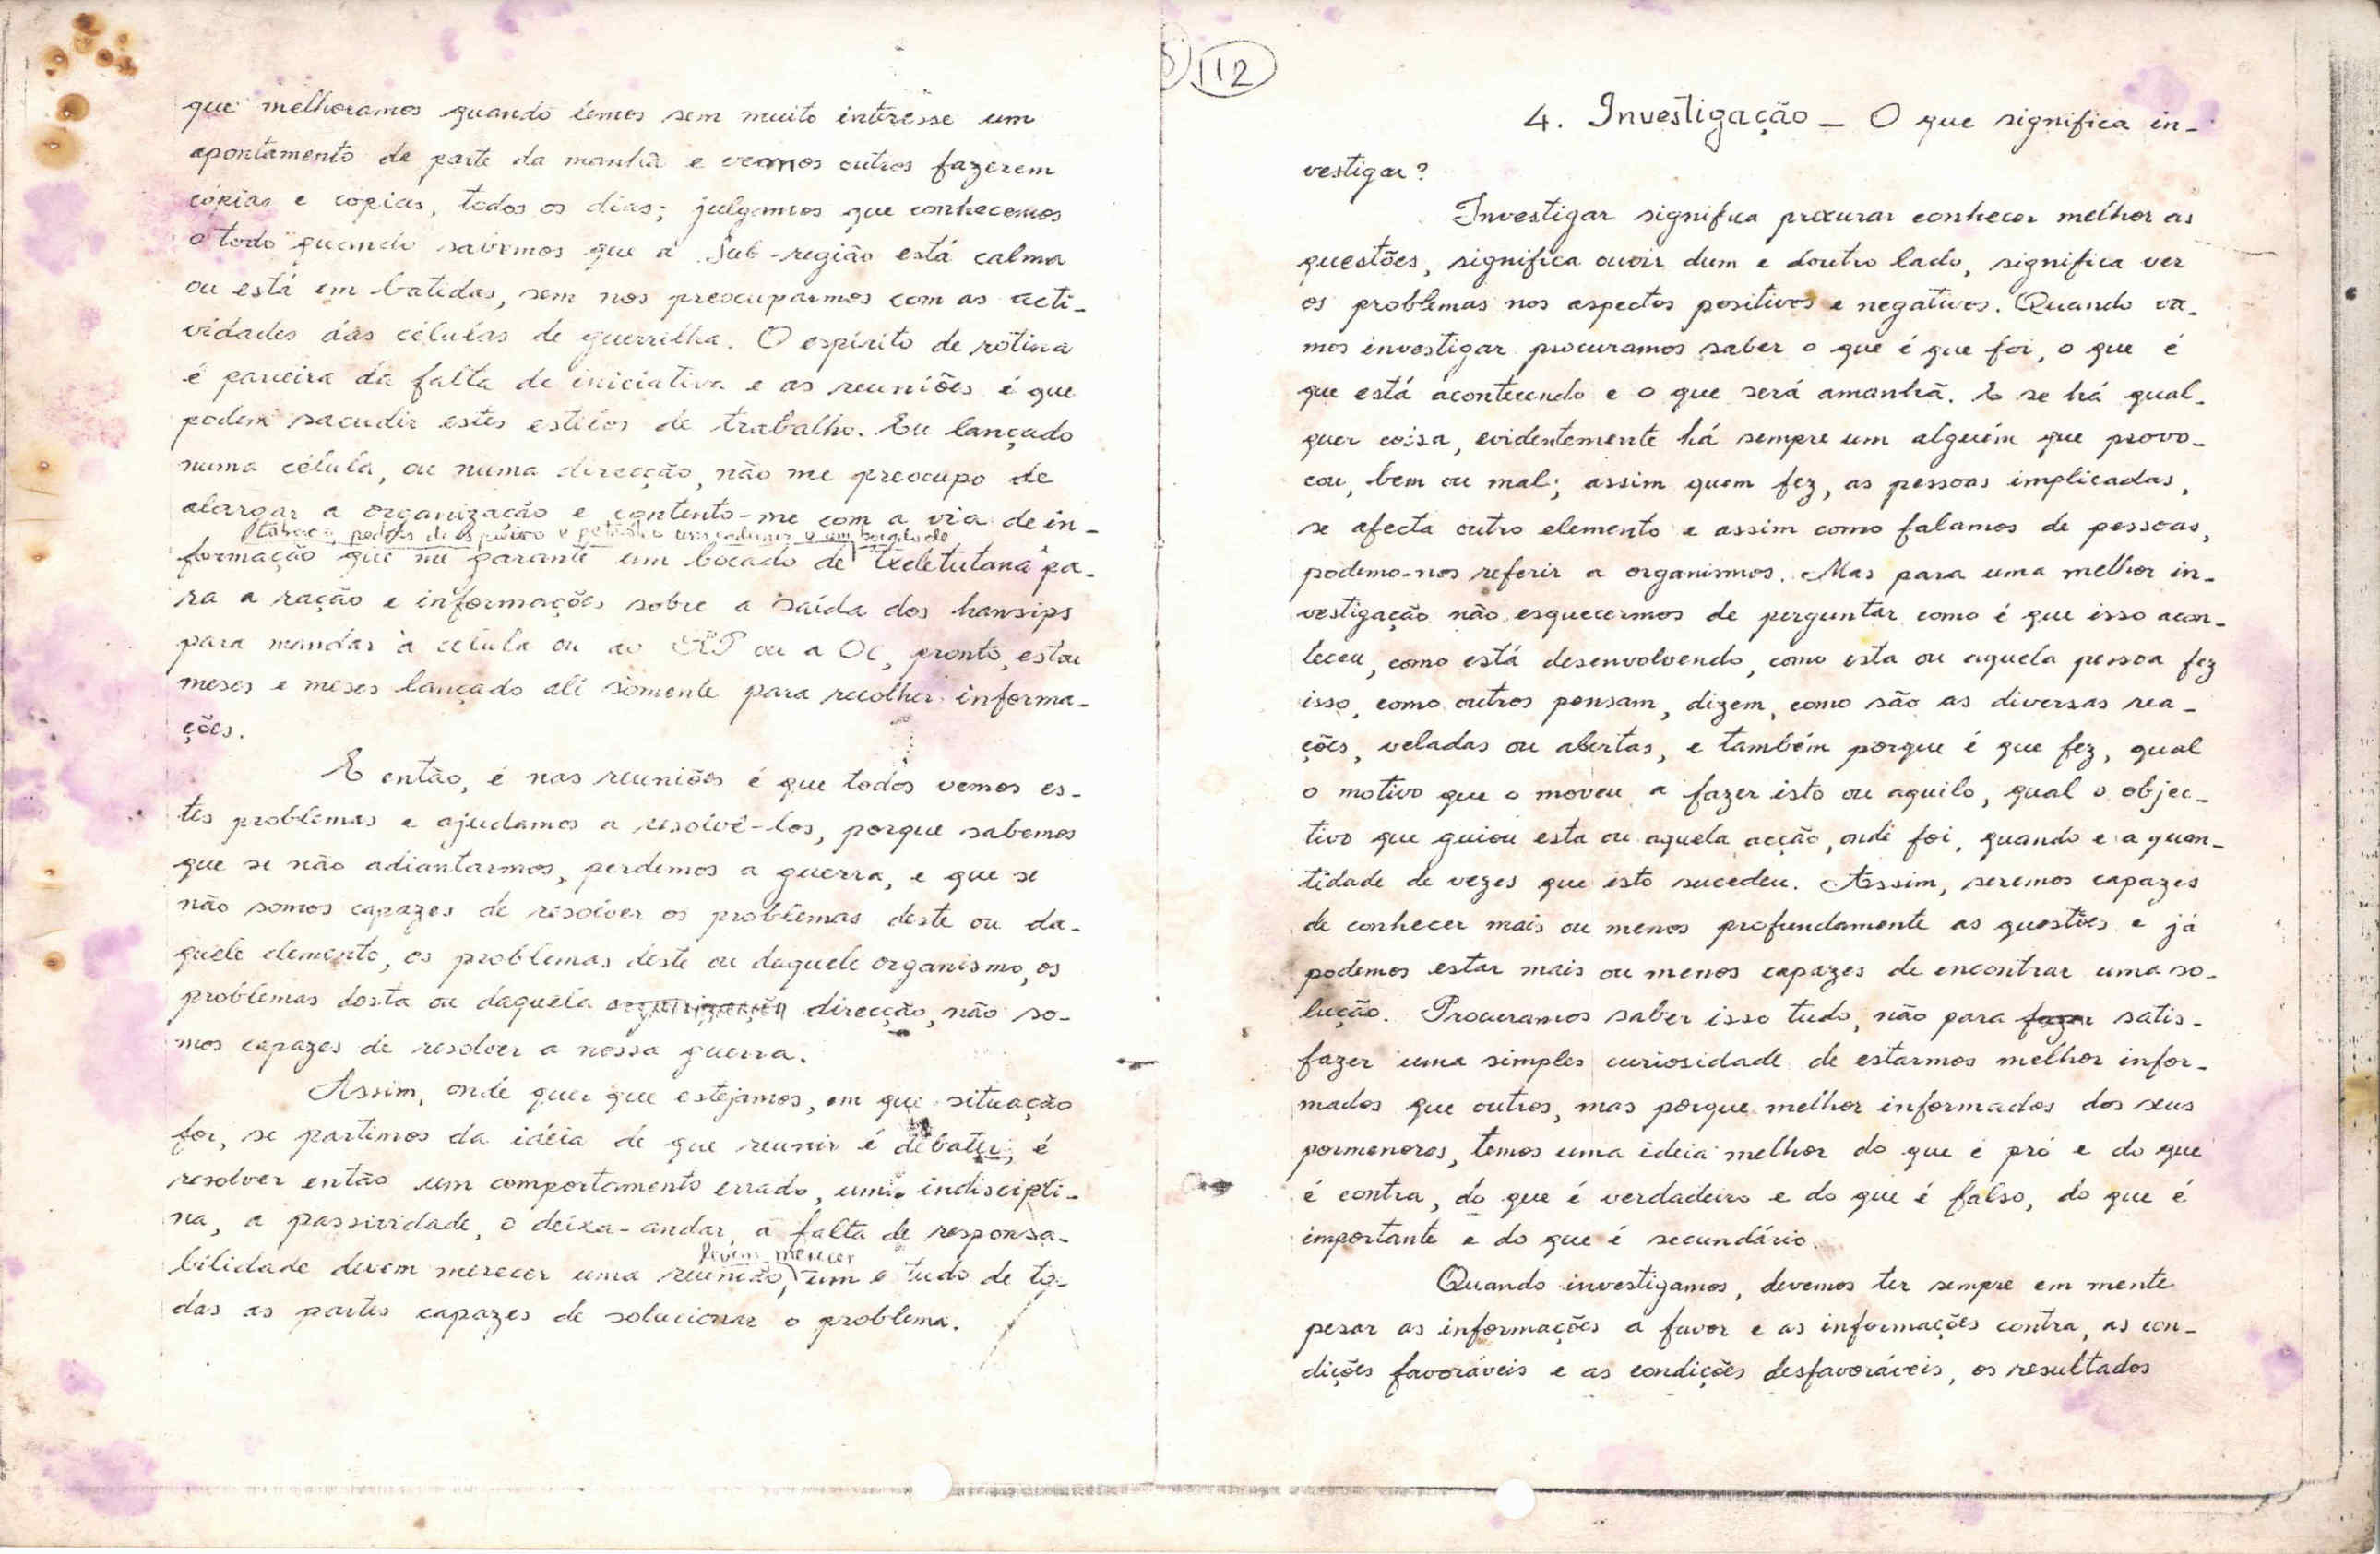 que melhoramos quando lemos sem muito interêsse um
apontamento de parte da manhã e vemos outros fazerem
cópias e copias, todos os dias; julgamos que conhecemos
o todo quando sabemos que a Sub-região está calma
ou está em batidas, sem nos preocuparmos com as acti-
vidades das células de guerrilha. O espírito de rotina
é parceira da falta de iniciativa e as reuniões é que
podem sacudir estes estilos de trabalho. Eu lançado
numa célula, ou numa direcção, não me preocupo de
alargar a organização e contento-me com a via de in-
formação que me garante um bocado de txeletutana pa-
ra a ração e informações sobre a saída dos hansips
para mandar à célula ou ao ou a OC, pronto, estou
meses e meses lançado ali sómente para recolher informa-
ções.
E então, é nas reuniões é que todos vemos es-
tes problemas e ajudamos a resolvê-los, porque sabemos
que se não adiantarmos, perdemos a guerra, e que se
não somos capazes de resolver os problemas deste ou da-
quele elemento, os problemas deste ou daquele organismo, os
problemas desta ou daquela organização direcção, não so-
mos capazes de resolver a nossa guerra.
Assim, onde quer que estejamos, em que situação
for, se partimos da idéia de que reunir é debater, é
resolver então um comportamento errado, uma indiscipli-
na, a passividade, o deixa-andar, a falta de responsa-
devem merecer
bilidade devem merecer uma reunião, um e tudo de to-
das as partes capazes de solucionar o problema.
12
4. Investigação - O que significa in-
vestigar?
Investigar significa procurar conhecer melhor as
questões, significa ouvir dum e doutro lado, significa ver
os problemas nos aspectos positivos e negativos. Quando va-
mos investigar procuramos saber o que é que foi, o que é
que está acontecendo e o que será amanhã. E se há qual-
quer coisa, evidentemente há sempre um alguém que provo-
cou, bem ou mal; assim quem fez, as pessoas implicadas,
se afecta outro elemento e assim como falamos de pessoas,
podemo-nos referir a organismos. Mas para uma melhor in-
vestigação não esquecermos de perguntar como é que isso acon-
teceu, como está desenvolvendo, como esta ou aquela pessoa fez
isso, como outros pensam, dizem, como são as diversas rea-
ções, veladas ou abertas, e também porque é que fez, qual
o motivo que o moveu a fazer isto ou aquilo, qual o objec-
tivo que guiou esta ou aquela acção, onde foi, quando e a quan-
tidade de vezes que isto sucedeu. Assim, seremos capazes
de conhecer mais ou menos profundamente as questões e já
podemos estar mais ou menos capazes de encontrar uma so-
lução. Procuramos saber isso tudo, não para fazer satis-
fazer uma simples curiosidade de estarmos melhor infor-
mados que outros, mas porque melhor informados dos seus
pormenores, temos uma ideia melhor do que é pró e do que
é contra, do que é verdadeiro e do que é falso, do que é
importante e do que é secundário.
Quando investigamos, devemos ter sempre em mente
pesar as informações a favor e as informações contra, as con-
dições favoráveis e as condições desfavoráveis, os resultados